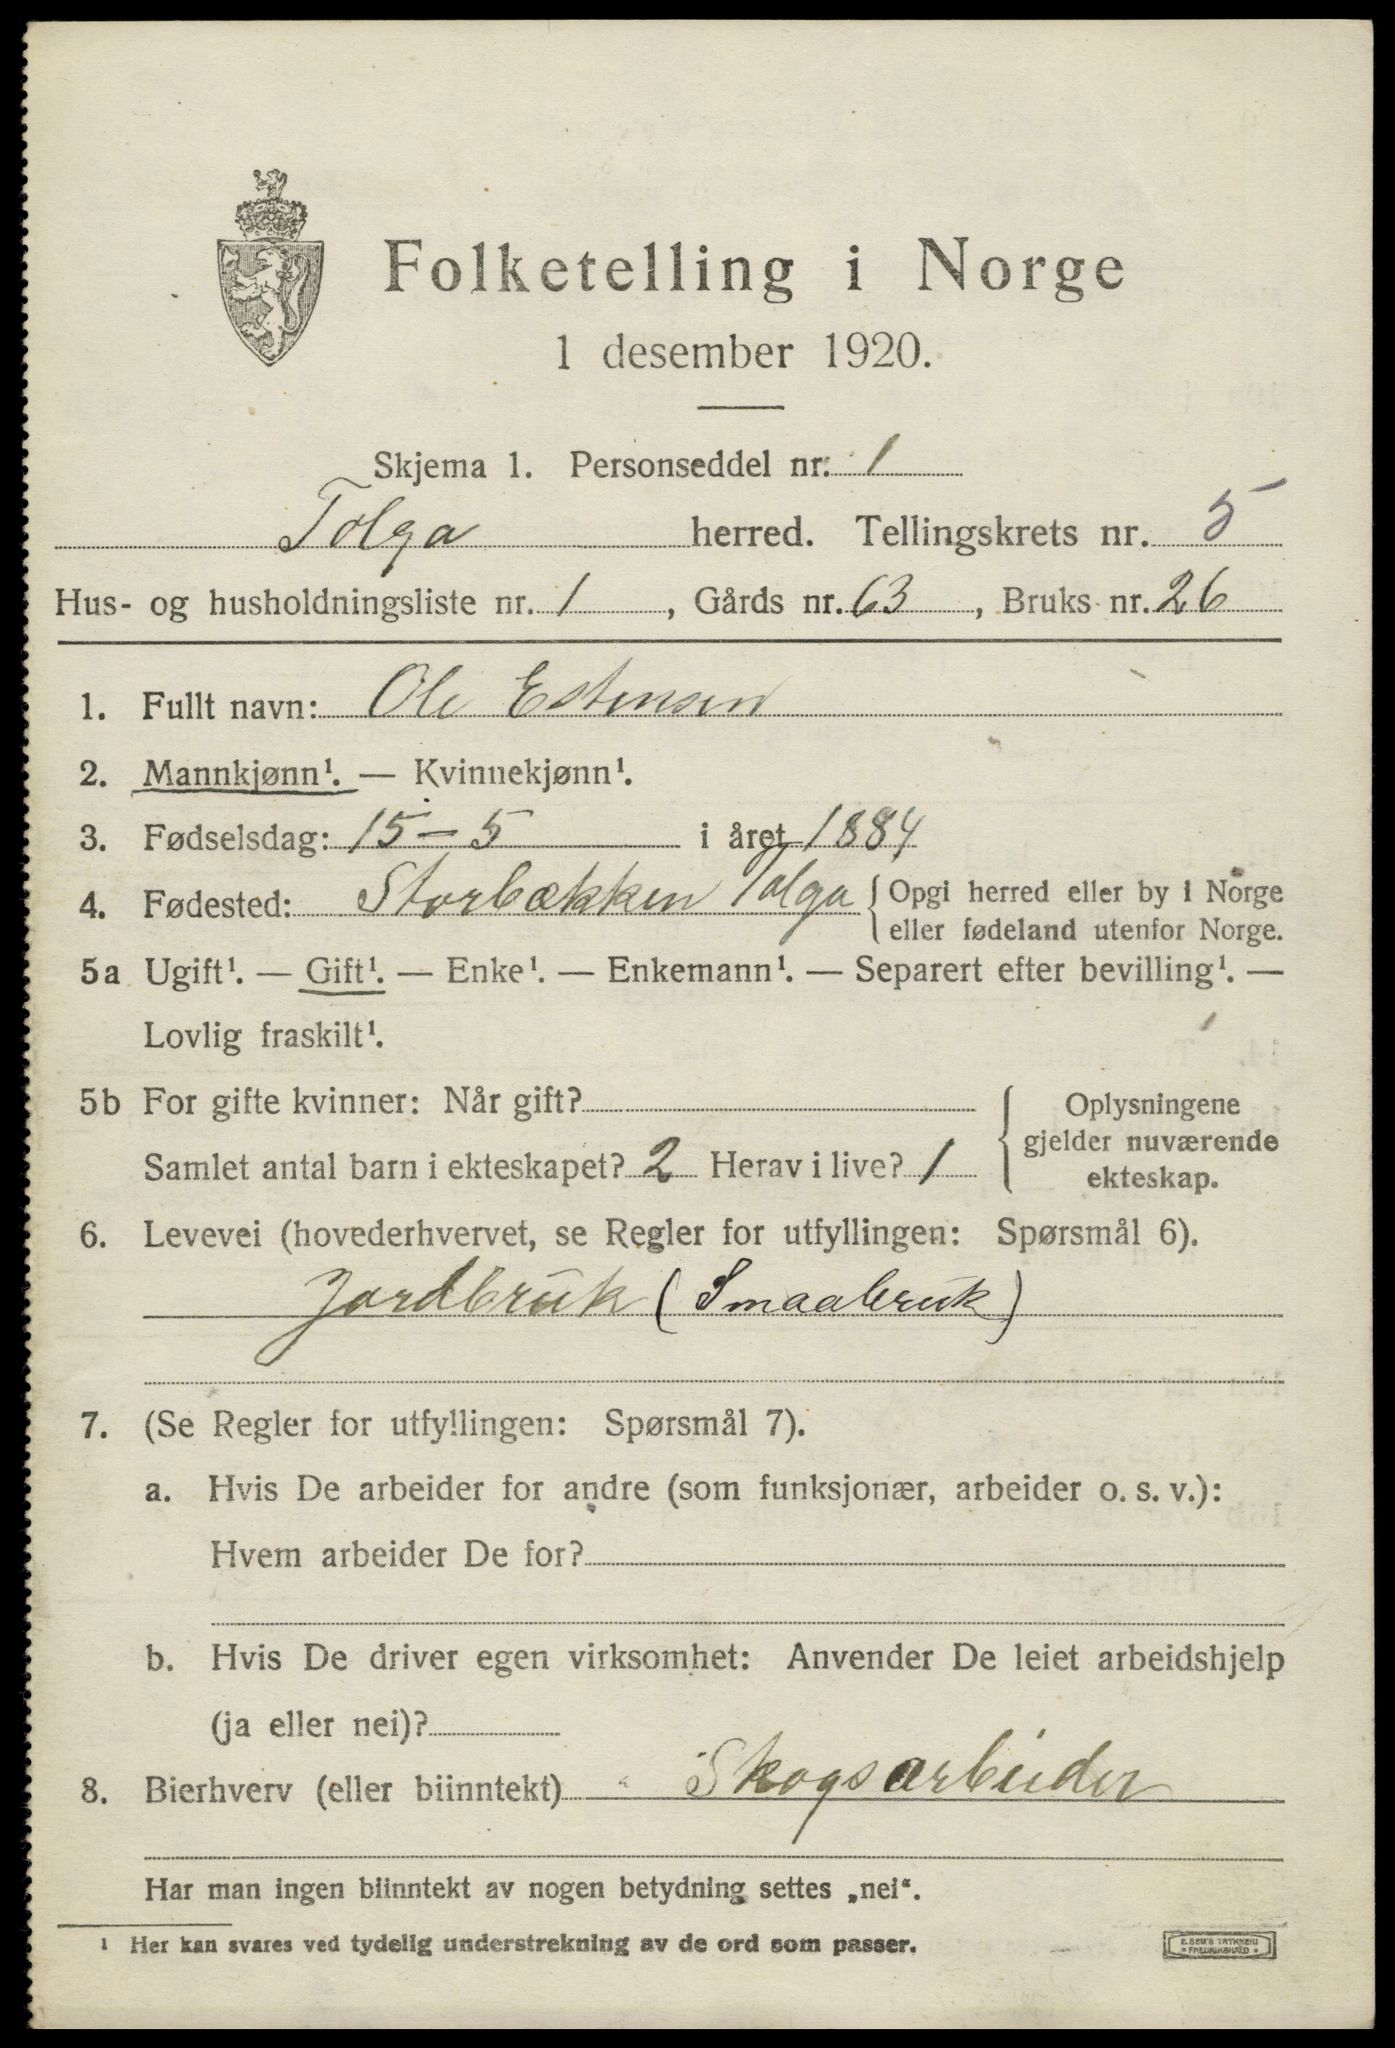 Folketelling i Norge
1 desember 1920.
Skjema 1. Personseddel nr. 1
Tolga herred. Tellingskrets nr. 5
Hus- og husholdningsliste nr. 1, Gårds nr. 63, Bruks nr. 26
1. Fullt navn: Ole Estensen
2. Mannkjønn¹. — Kvinnekjønn¹.
3. Fødselsdag: 15-5 i året 1884
4. Fødested: Storbækken Tolga { Opgi herred eller by i Norge
eller fødeland utenfor Norge.
5a Ugift¹. — Gift¹. — Enke¹. — Enkemann¹. — Separert efter bevilling¹. —
Lovlig fraskilt¹.
5b For gifte kvinner: Når gift?
Samlet antal barn i ekteskapet? 2 Herav i live? 1
Oplysningene
gjelder nuværende
ekteskap.
6. Levevei (hovederhvervet, se Regler for utfyllingen: Spørsmål 6).
Jordbruk (Smaabruk)
7. (Se Regler for utfyllingen: Spørsmål 7).
a. Hvis De arbeider for andre (som funksjonær, arbeider o. s. v.):
Hvem arbeider De for?
b. Hvis De driver egen virksomhet: Anvender De leiet arbeidshjelp
(ja eller nei)?
8. Bierhverv (eller biinntekt) Skogsarbeider
Har man ingen biinntekt av nogen betydning settes „nei“.
¹ Her kan svares ved tydelig understrekning av de ord som passer.
E. SEM'S TRYKKERI
FREDRIKSHALD